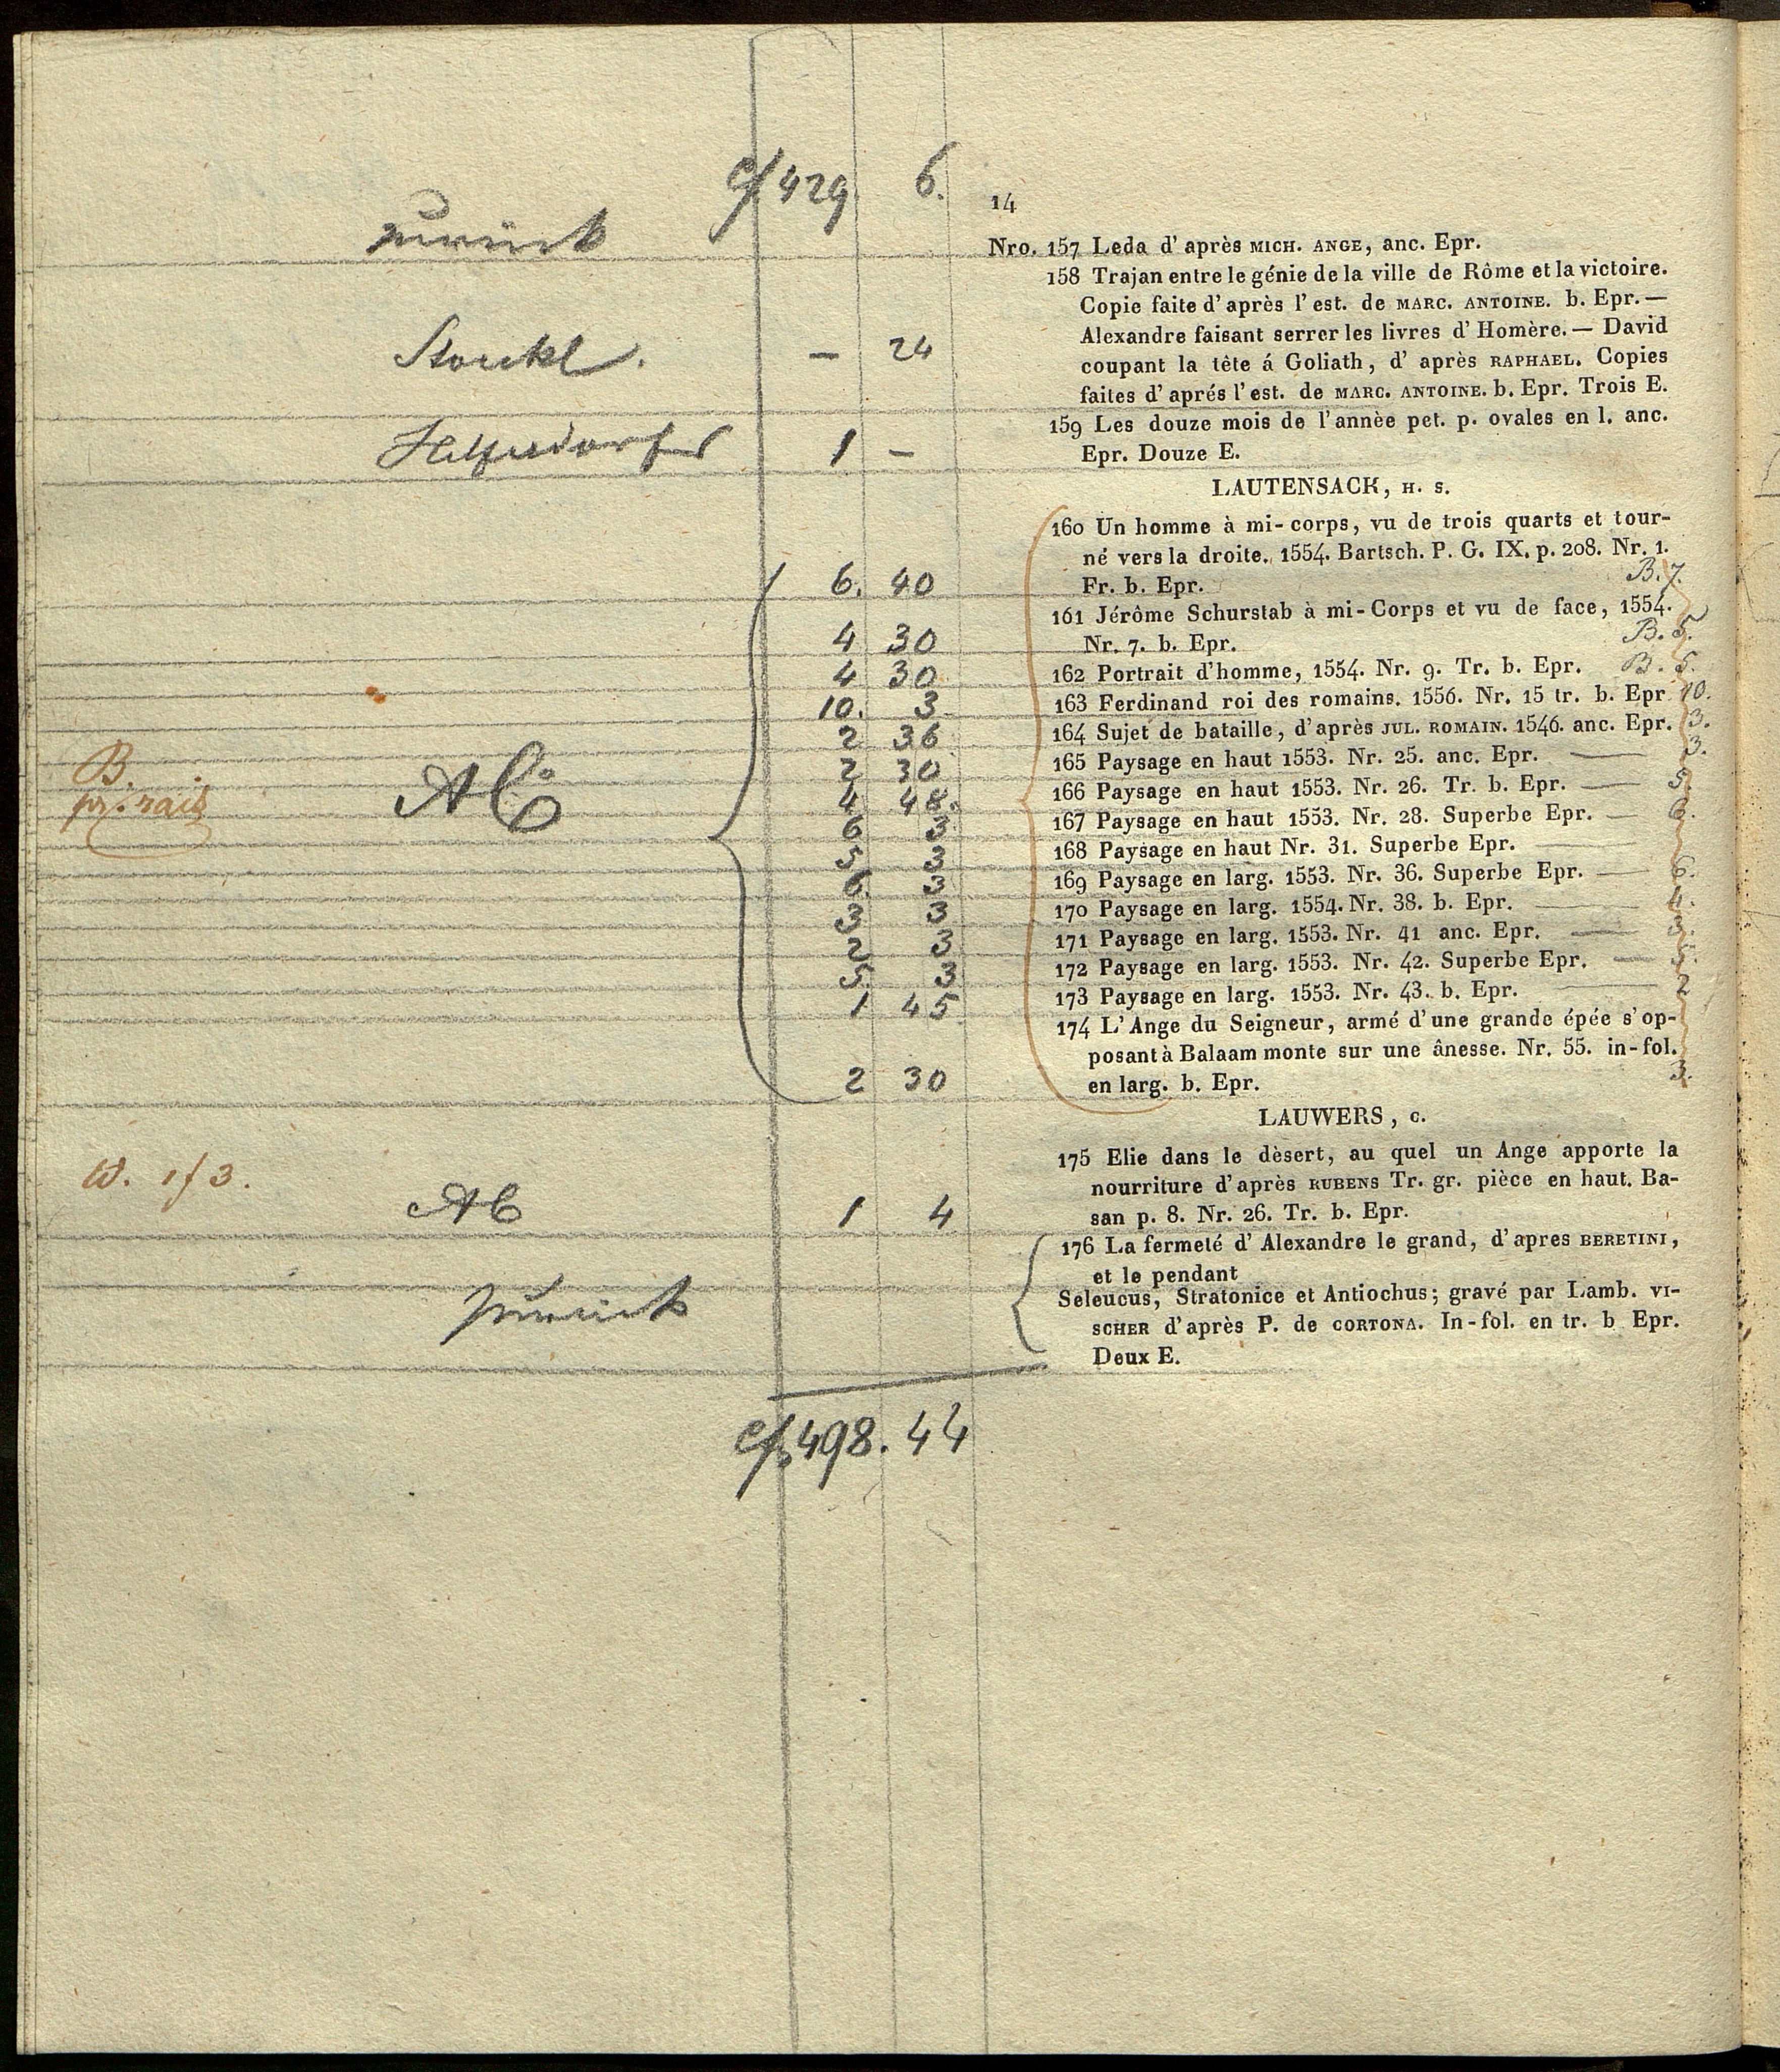 c/ 429 6.
14
zurück
Nro. 157 Leda d' après MICH. ANGE, anc. Epr.
158 Trajan entre le génie de la ville de Rôme et la victoire.
Copie faite d' après l' est. de MARC. ANTOINE. b. Epr. —
Alexandre faisant serrer les livres d' Homère. — David
Stoukl. — 24
coupant la tête á Goliath, d' après RAPHAEL. Copies
faites d' aprés l' est. de MARC. ANTOINE. b. Epr. Trois E.
1 —
159 Les douze mois de l' annèe pet. p. ovales en l. anc.
Epr. Douze E.
LAUTENSACK, H. S.
160 Un homme à mi-corps, vu de trois quarts et tour-
né vers la droite. 1554. Bartsch. P. G. IX. p. 208. Nr. 1.
6. 40 Fr. b. Epr. B. 7.
161 Jérôme Schurstab à mi-Corps et vu de face, 1554.
4 30 Nr. 7. b. Epr. B. 5.
4 30 162 Portrait d'homme, 1554. Nr. 9. Tr. b. Epr. B. 5.
10. 3 163 Ferdinand roi des romains. 1556. Nr. 15 tr. b. Epr 10.
2 36 164 Sujet de bataille, d'après JUL. ROMAIN. 1546. anc. Epr. 3.
2 30 165 Paysage en haut 1553. Nr. 25. anc. Epr. — 3.
B.
AC
4 48. 166 Paysage en haut 1553. Nr. 26. Tr. b. Epr. — 5.
6 3 167 Paysage en haut 1553. Nr. 28. Superbe Epr. — 6.
5 3 168 Paysage en haut Nr. 31. Superbe Epr. —
6 3 169 Paysage en larg. 1553. Nr. 36. Superbe Epr. — 6.
3 3 170 Paysage en larg. 1554. Nr. 38. b. Epr. — 4.
2 3 171 Paysage en larg. 1553. Nr. 41 anc. Epr. — 3.
5 3 172 Paysage en larg. 1553. Nr. 42. Superbe Epr. — 5.
1 45 173 Paysage en larg. 1553. Nr. 43. b. Epr. — 2
174 L'Ange du Seigneur, armé d'une grande épée s'op-
posant à Balaam monte sur une ânesse. Nr. 55. in-fol.
2 30 en larg. b. Epr. 3.
LAUWERS, C.
175 Elie dans le dèsert, au quel un Ange apporte la
W. 1f 3.
nourriture d'après RUBENS Tr. gr. pièce en haut. Ba-
AC 1 4 san p. 8. Nr. 26. Tr. b. Epr.
176 La fermeté d' Alexandre le grand, d'apres BERETINI,
et le pendant
zurück
Seleucus, Stratonice et Antiochus; gravé par Lamb. VI-
SCHER d'après P. de CORTONA. In-fol. en tr. b Epr.
Deux E.
c/ 498. 44